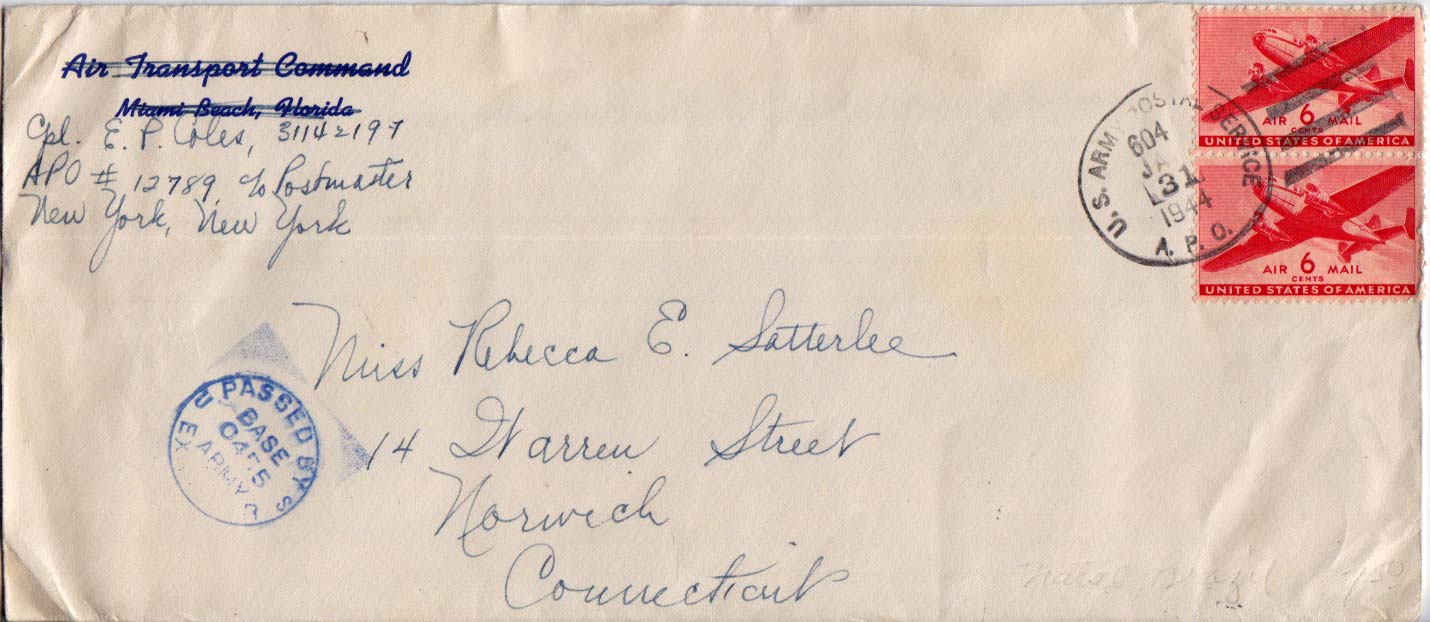 Air Transport Command
Miami Beach, Florida
Cpl. E. P. Coles, 31142197
APO # 12789 c/o Postmaster
New York, New York
U.S. ARMY POSTAL SERVICE
604
31
1944
A. P. O.
AIR 6 MAIL
CENTS
UNITED STATES OF AMERICA
AIR 6 MAIL
CENTS
UNITED STATES OF AMERICA
Miss Rebecca E. Satterlee
14 Warren Street
Norwich
Connecticut
PASSED BY
BASE
ARMY
Natal Brazil